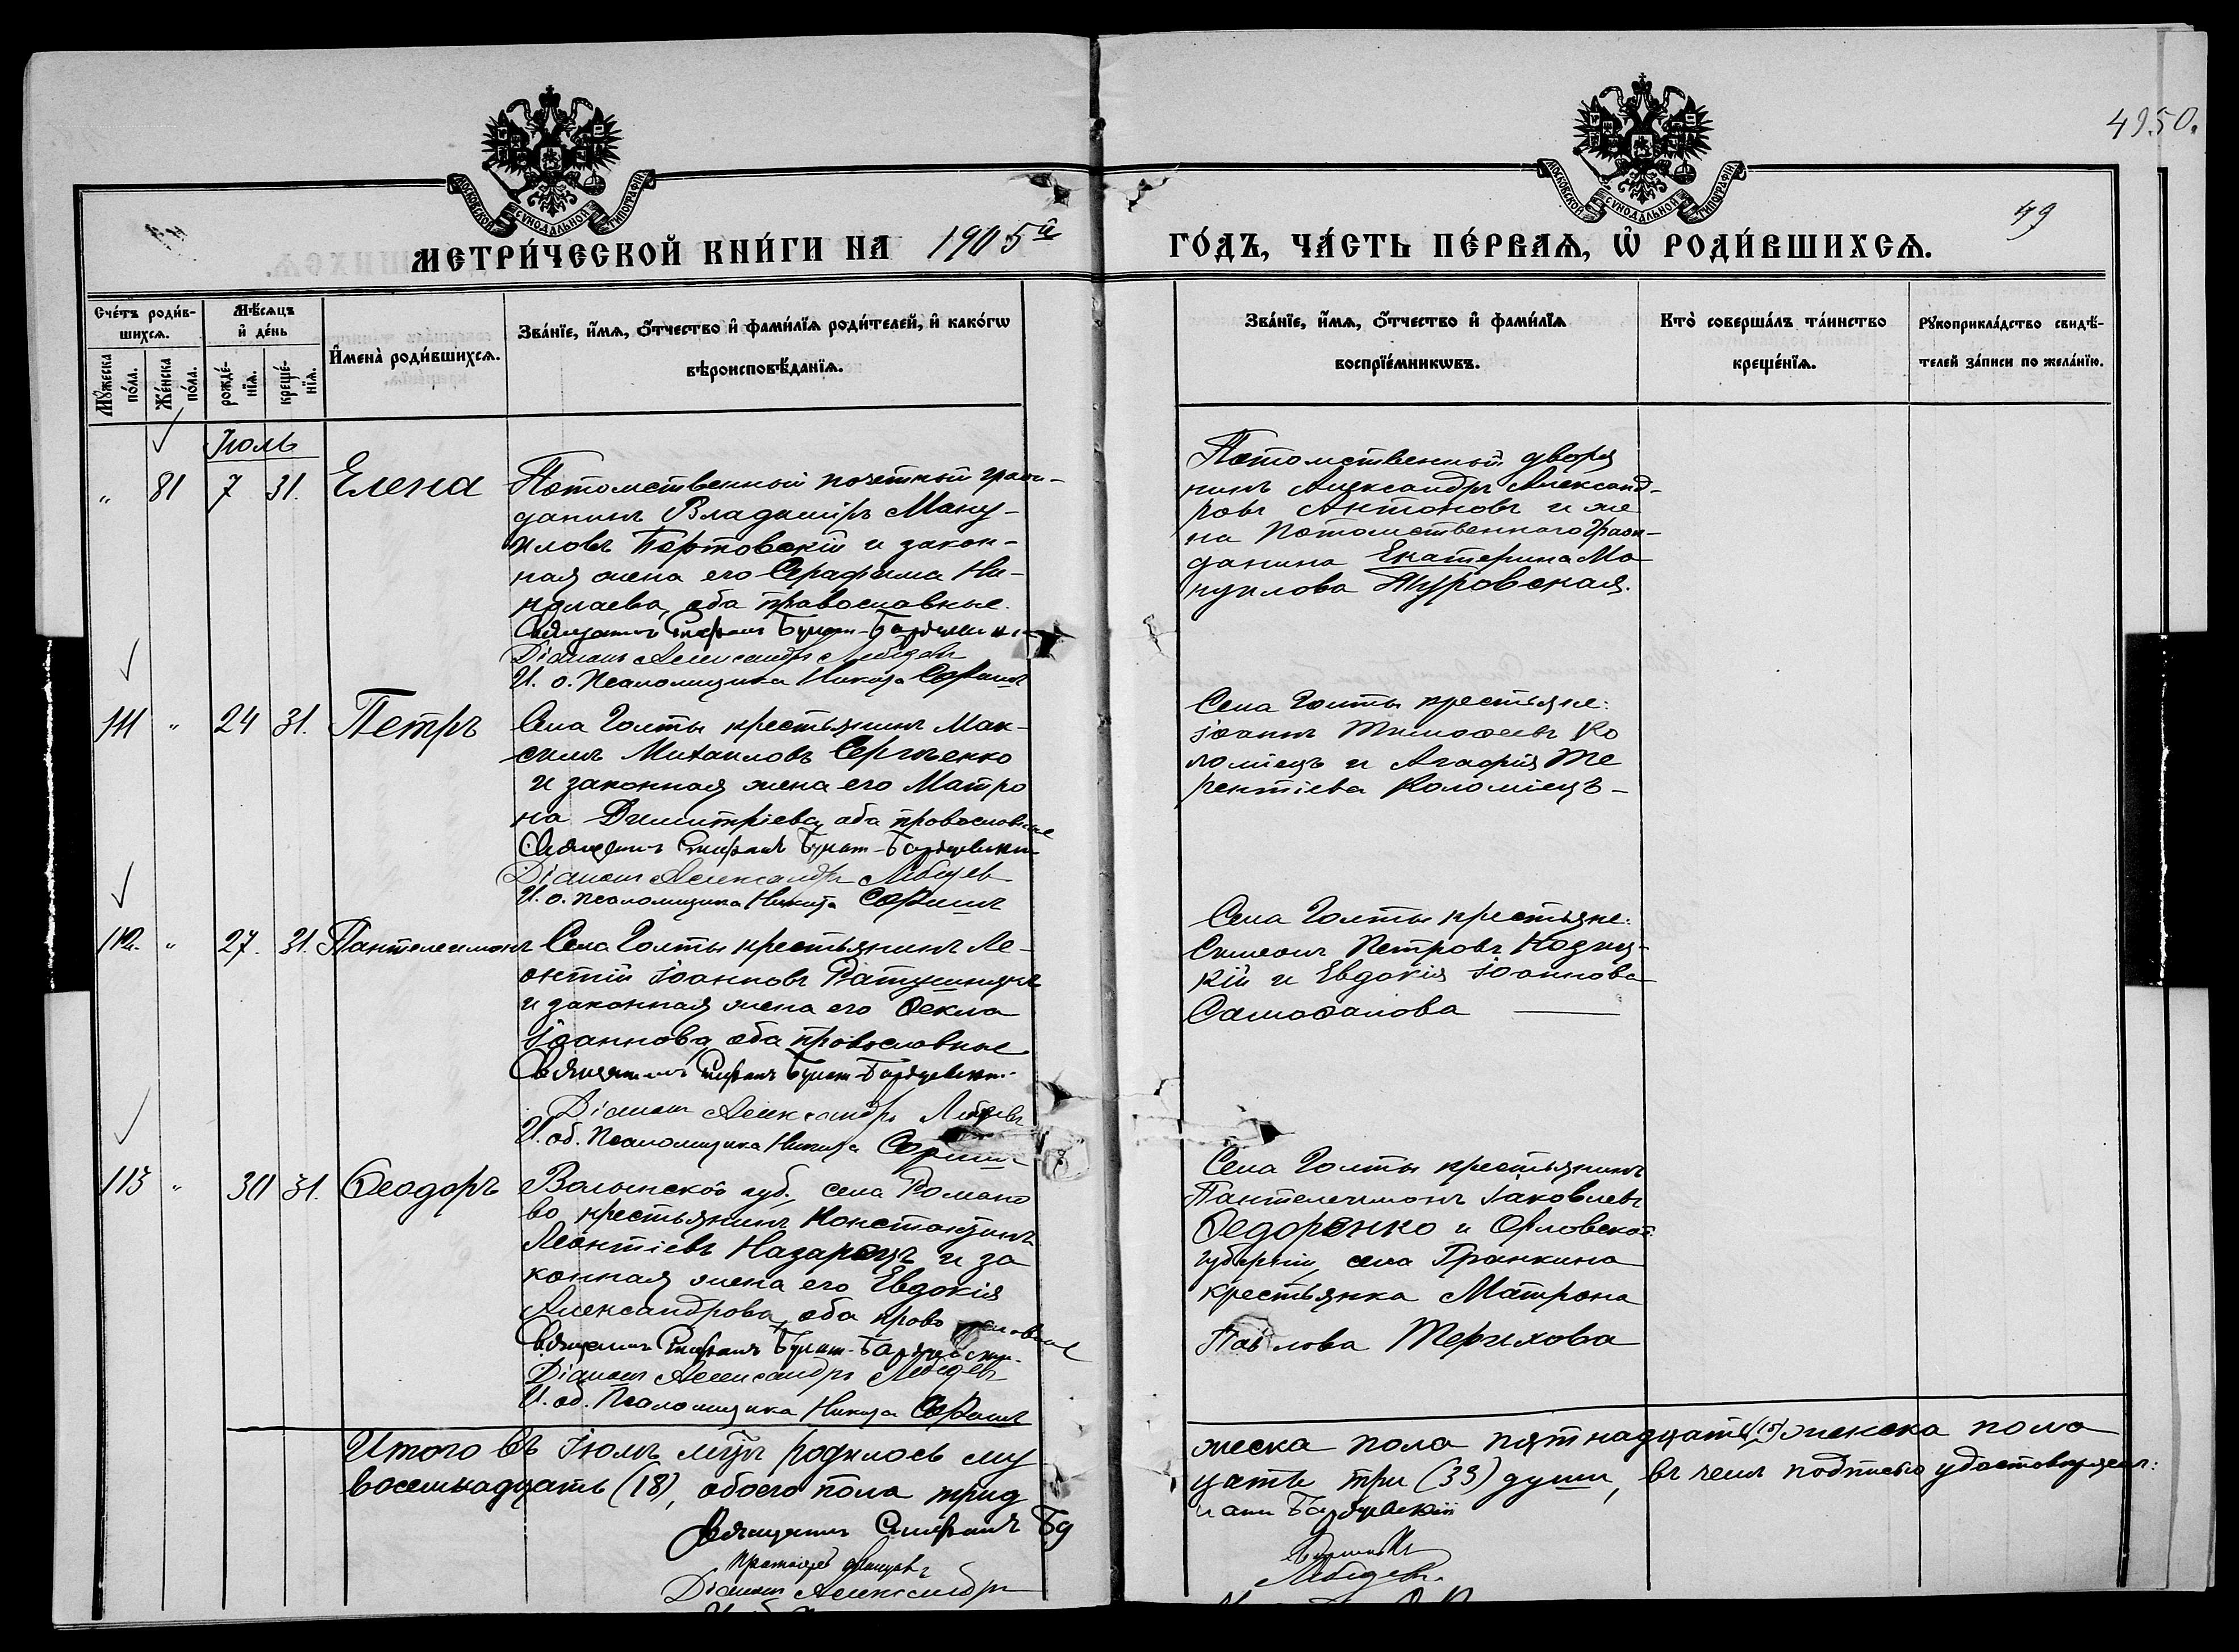 4950.
МОСКОВСКОЙ СѴНОДАЛЬНОЙ ТИПОГРАФІИ
МОСКОВСКОЙ СѴНОДАЛЬНОЙ ТИПОГРАФІИ
49
МЕТРИ́ЧЕСКОЙ КНИ́ГИ НА 1905й
ГО́ДЪ, ЧА́СТЬ ПЕ́РВАѦ, Ѡ҆ РОДИ́ВШИХСѦ.
Сче́тъ роди́в-
шихсѧ.
Мꙋ́жеска по́ла.
Же́нска по́ла.
Мѣ́сѧцъ
и҆ де́нь
рожде́-нїѧ.
креще́-нїѧ.
И҆мена̀ роди́вшихсѧ.
Зва́нїе, и҆́мѧ, ѻ҆́тчество и҆ фами́лїѧ роди́телей, и҆ како́гѡ
вѣроисповѣ́данїѧ.
Зва́нїе, и҆́мѧ, ѻ҆́тчество и҆ фами́лїѧ
воспрїе́мникѡвъ.
Кто̀ соверша́лъ та́инство
креще́нїѧ.
Рꙋкоприкла́дство свидѣ́-
телей за́писи по жела́нїю.
Іюль
" 81 7 31. Елена
Потомственный почетный граж-
данинъ Владимiръ Ману-
иловъ Бортовскій и закон-
ная жена его Серафима Ни-
колаева, оба православные.
Священникъ Стефанъ
Діаконъ Александръ Лебедевъ
И. о. Псаломщика Никита
Потомственный дворя
нинъ Александръ Александ-
ровъ Антоновъ и же
на Потомственнаго граж-
данина Екатерина Ма
нуилова Туровская.
111 " 24 31. Петръ
Села Голты крестьянинъ Мак-
симъ Михаиловъ Сергѣенко
и законная жена его Матро
на Димитріева, оба православные
Священникъ Стефанъ
Діаконъ Александръ Лебедев
И. о. псаломщика Никита
Села Голты крестьяне:
Іоаннъ Тимоѳеевъ Ко
ломіецъ и Агафія Те
рентіева Коломіецъ -
112. " 27. 31. Пантелеимонъ
Села Голты крестьянинъ Ле-
онтій Іоанновъ Ратушнякъ
и законная жена его Ѳекла
Іоаннова, оба православные
Священникъ Стефанъ
Діаконъ Александръ Лебедевъ
И. об. Псаломщика Никита
Села Голты крестьяне:
Симеонъ Петровъ Козиц-
кій и Евдокія Іоаннова
Самофалова
113 " 30 31. Ѳеодоръ
Волынской губ., села Романо
во крестьянинъ Константинъ
Леонтіевъ Назарецъ и за
конная жена его Евдокія
Александрова, оба православные
Священникъ Стефанъ
Діаконъ Александръ Лебедевъ
И. об. Псаломщика Никита
Села Голты крестьянинъ
Пантелеимонъ Іаковлевъ
Ѳедоренко и Орловской
губерніи, села Гранкина
крестьянка Матрона
Павлова Терихова
Итого въ Іюлѣ мѣсяцѣ родилось му
жеска пола пятнадцать (15) женска пола
восемнадцать (18), обоего пола трид
цать три (33) души, въ чемъ подписью удостовѣряемъ:
Священникъ Стефанъ
Діаконъ Александръ
Лебедевъ.